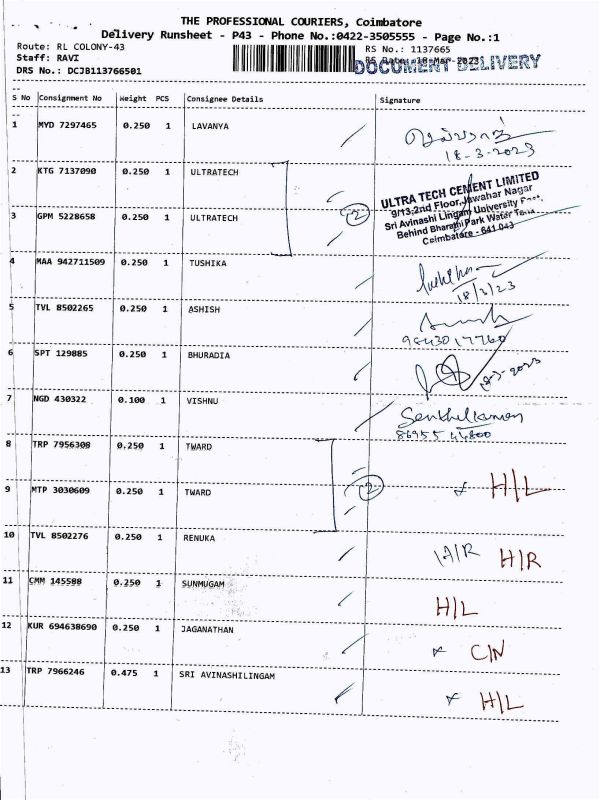 THE PROFESSIONAL COURIERS, Coimbatore
Delivery Runsheet - P43 - Phone No.:0422-3505555 - Page No.:1
Route: RL COLONY-43
RS No.: 1137665
Staff: RAVI
RS Date: 18-Mar-2023
DOCUMENT DELIVERY
DRS No.: DCJB113766501
S No Consignment No Weight PCS Consignee Details Signature
1 MYD 7297465 0.250 1 LAVANYA
18-3-2023
2 KTG 7137090 0.250 1 ULTRATECH
3 GPM 5228658 0.250 1 ULTRATECH
2
ULTRA TECH CEMENT LIMITED
9/13, 2nd Floor, Jawahar Nagar
Sri Avinashi Lingam University
Behind Bharathi Park Water
Coimbatore - 641 043
4 MAA 942711509 0.250 1 TUSHIKA
18/3/23
5 TVL 8502265 0.250 1 ASHISH
9843017760
6 SPT 129885 0.250 1 BHURADIA
7 NGD 430322 0.100 1 VISHNU
8 TRP 7956308 0.250 1 TWARD
9 MTP 3030609 0.250 1 TWARD
2
H/L
10 TVL 8502276 0.250 1 RENUKA
H/R
11 CMM 145588 0.250 1 SUNMUGAM
H/L
12 KUR 694638690 0.250 1 JAGANATHAN
C/N
13 TRP 7966246 0.475 1 SRI AVINASHILINGAM
H/L